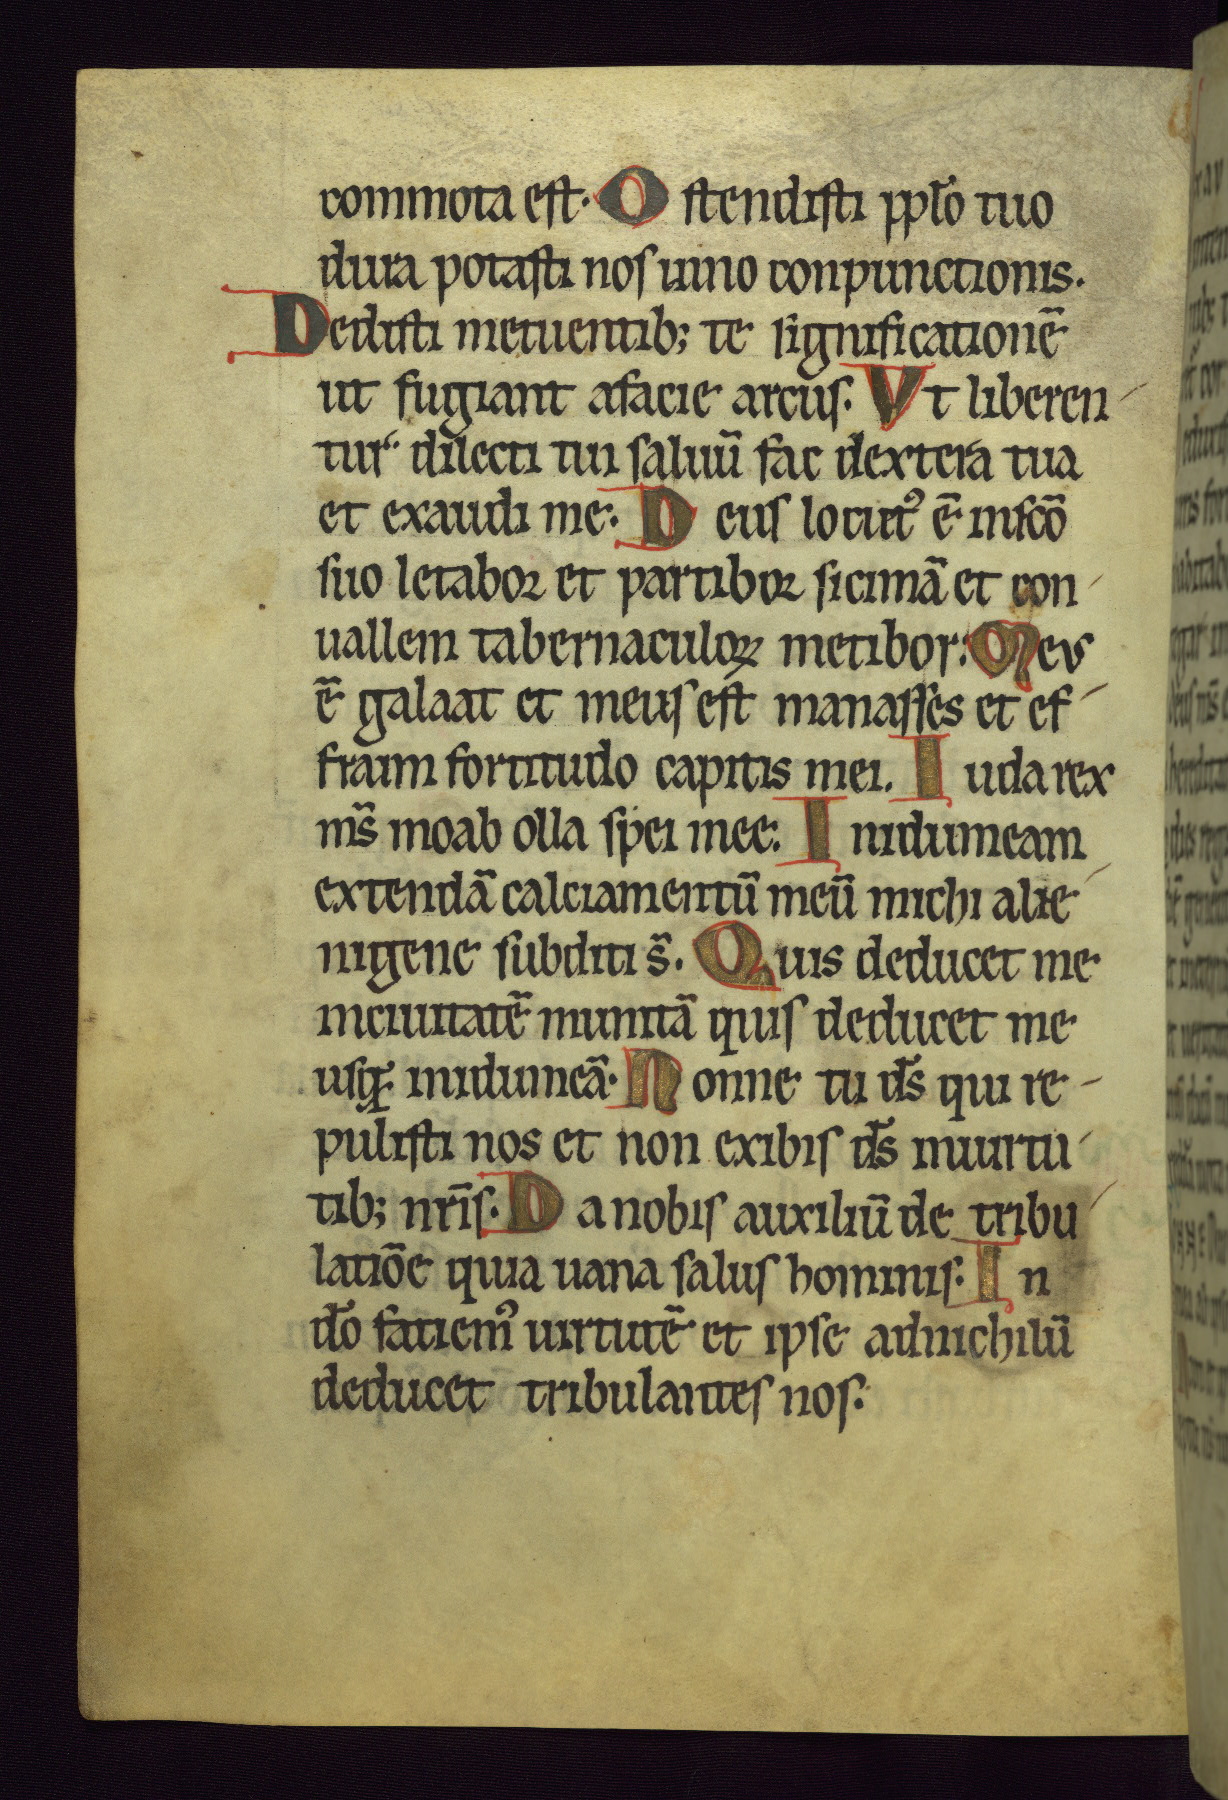 commota est. Ostendisti pplo tuo
dura potasti nos uino conpunctionis.
Dedisti metuentib; te significationē
ut fugiant afacie arcus. Vt liberen
tur dilecti tui saluū fac dextera tua
et exaudi me. Deus locut᾽ ē insc̄o
suo letaboꝛ et partiboꝛ sicimā et con
uallem tabernaculoꝝ metibor. Meus
ē galaat et meus est manasses et ef
fraim fortitudo capitis mei. Iuda rex
ms̄ moab olla spei mee. Inidumeam
extendā calciamentū meū michi alie
nigene subditi s̄. Quis deducet me
inciuitatē munitā quis deducet me
usq; inidumeā. Nonne tu ds̄ qui re
pulisti nos et non exibis ds̄ inuirtu
tib; nrīs. Da nobis auxiliū de tribu
latiōe quia uana salus hominis. In
dō fatiem᾽ uirtutē et ipse adnichilū
deducet tribulantes nos.